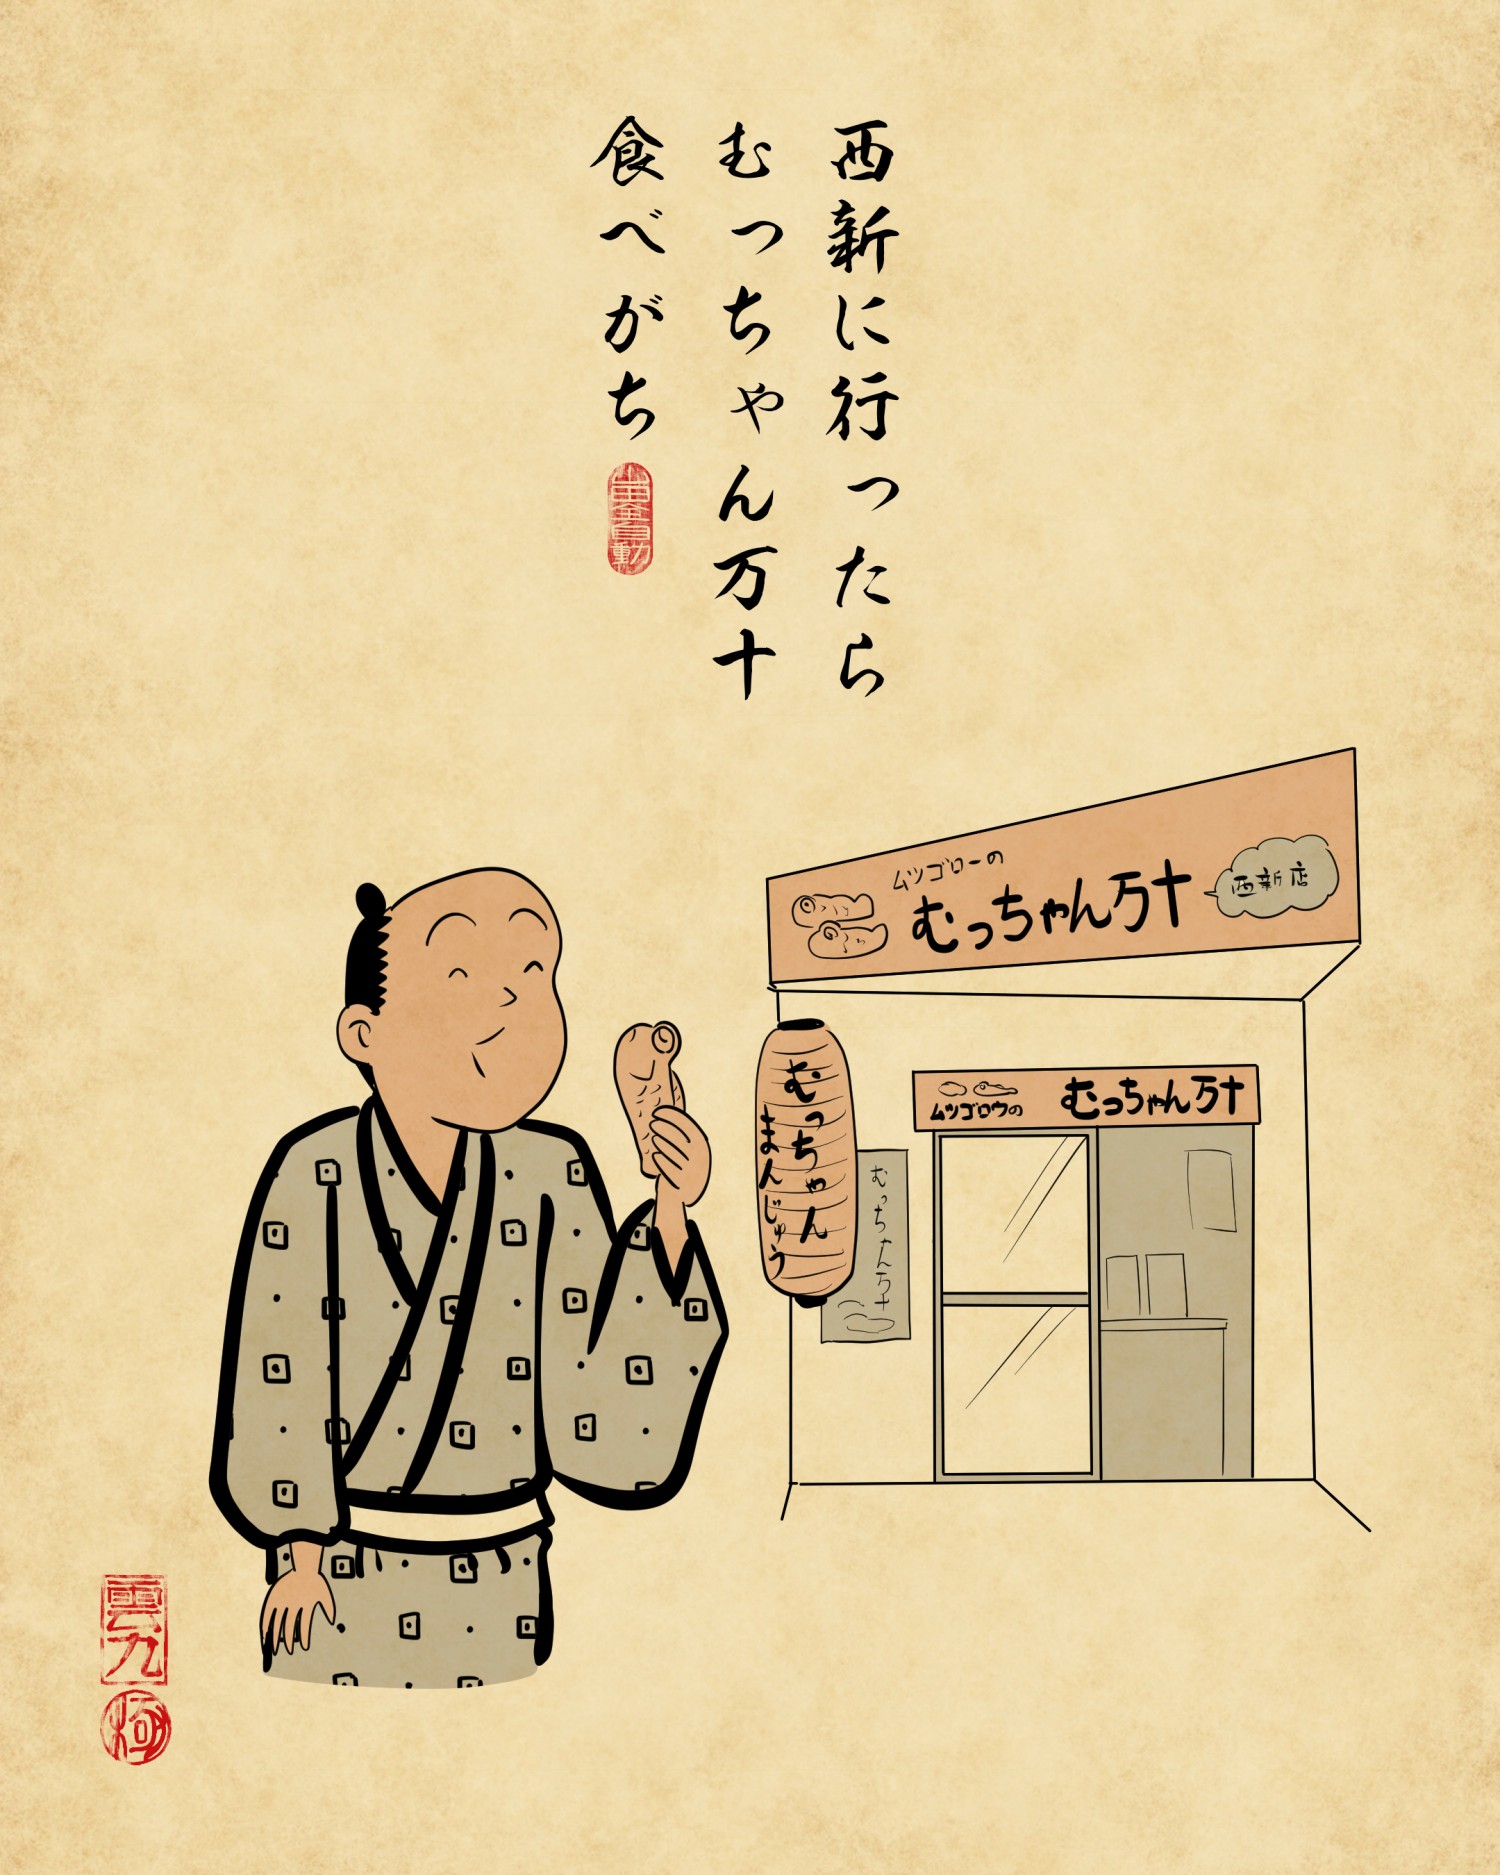 西新に行ったら
むっちゃん万十
食べがち
ムツゴローの
むっちゃん万十
西新店
ムツゴロウの
むっちゃん万十
むっちゃん
まんじゅう
むっちゃん万十
雲丸
極